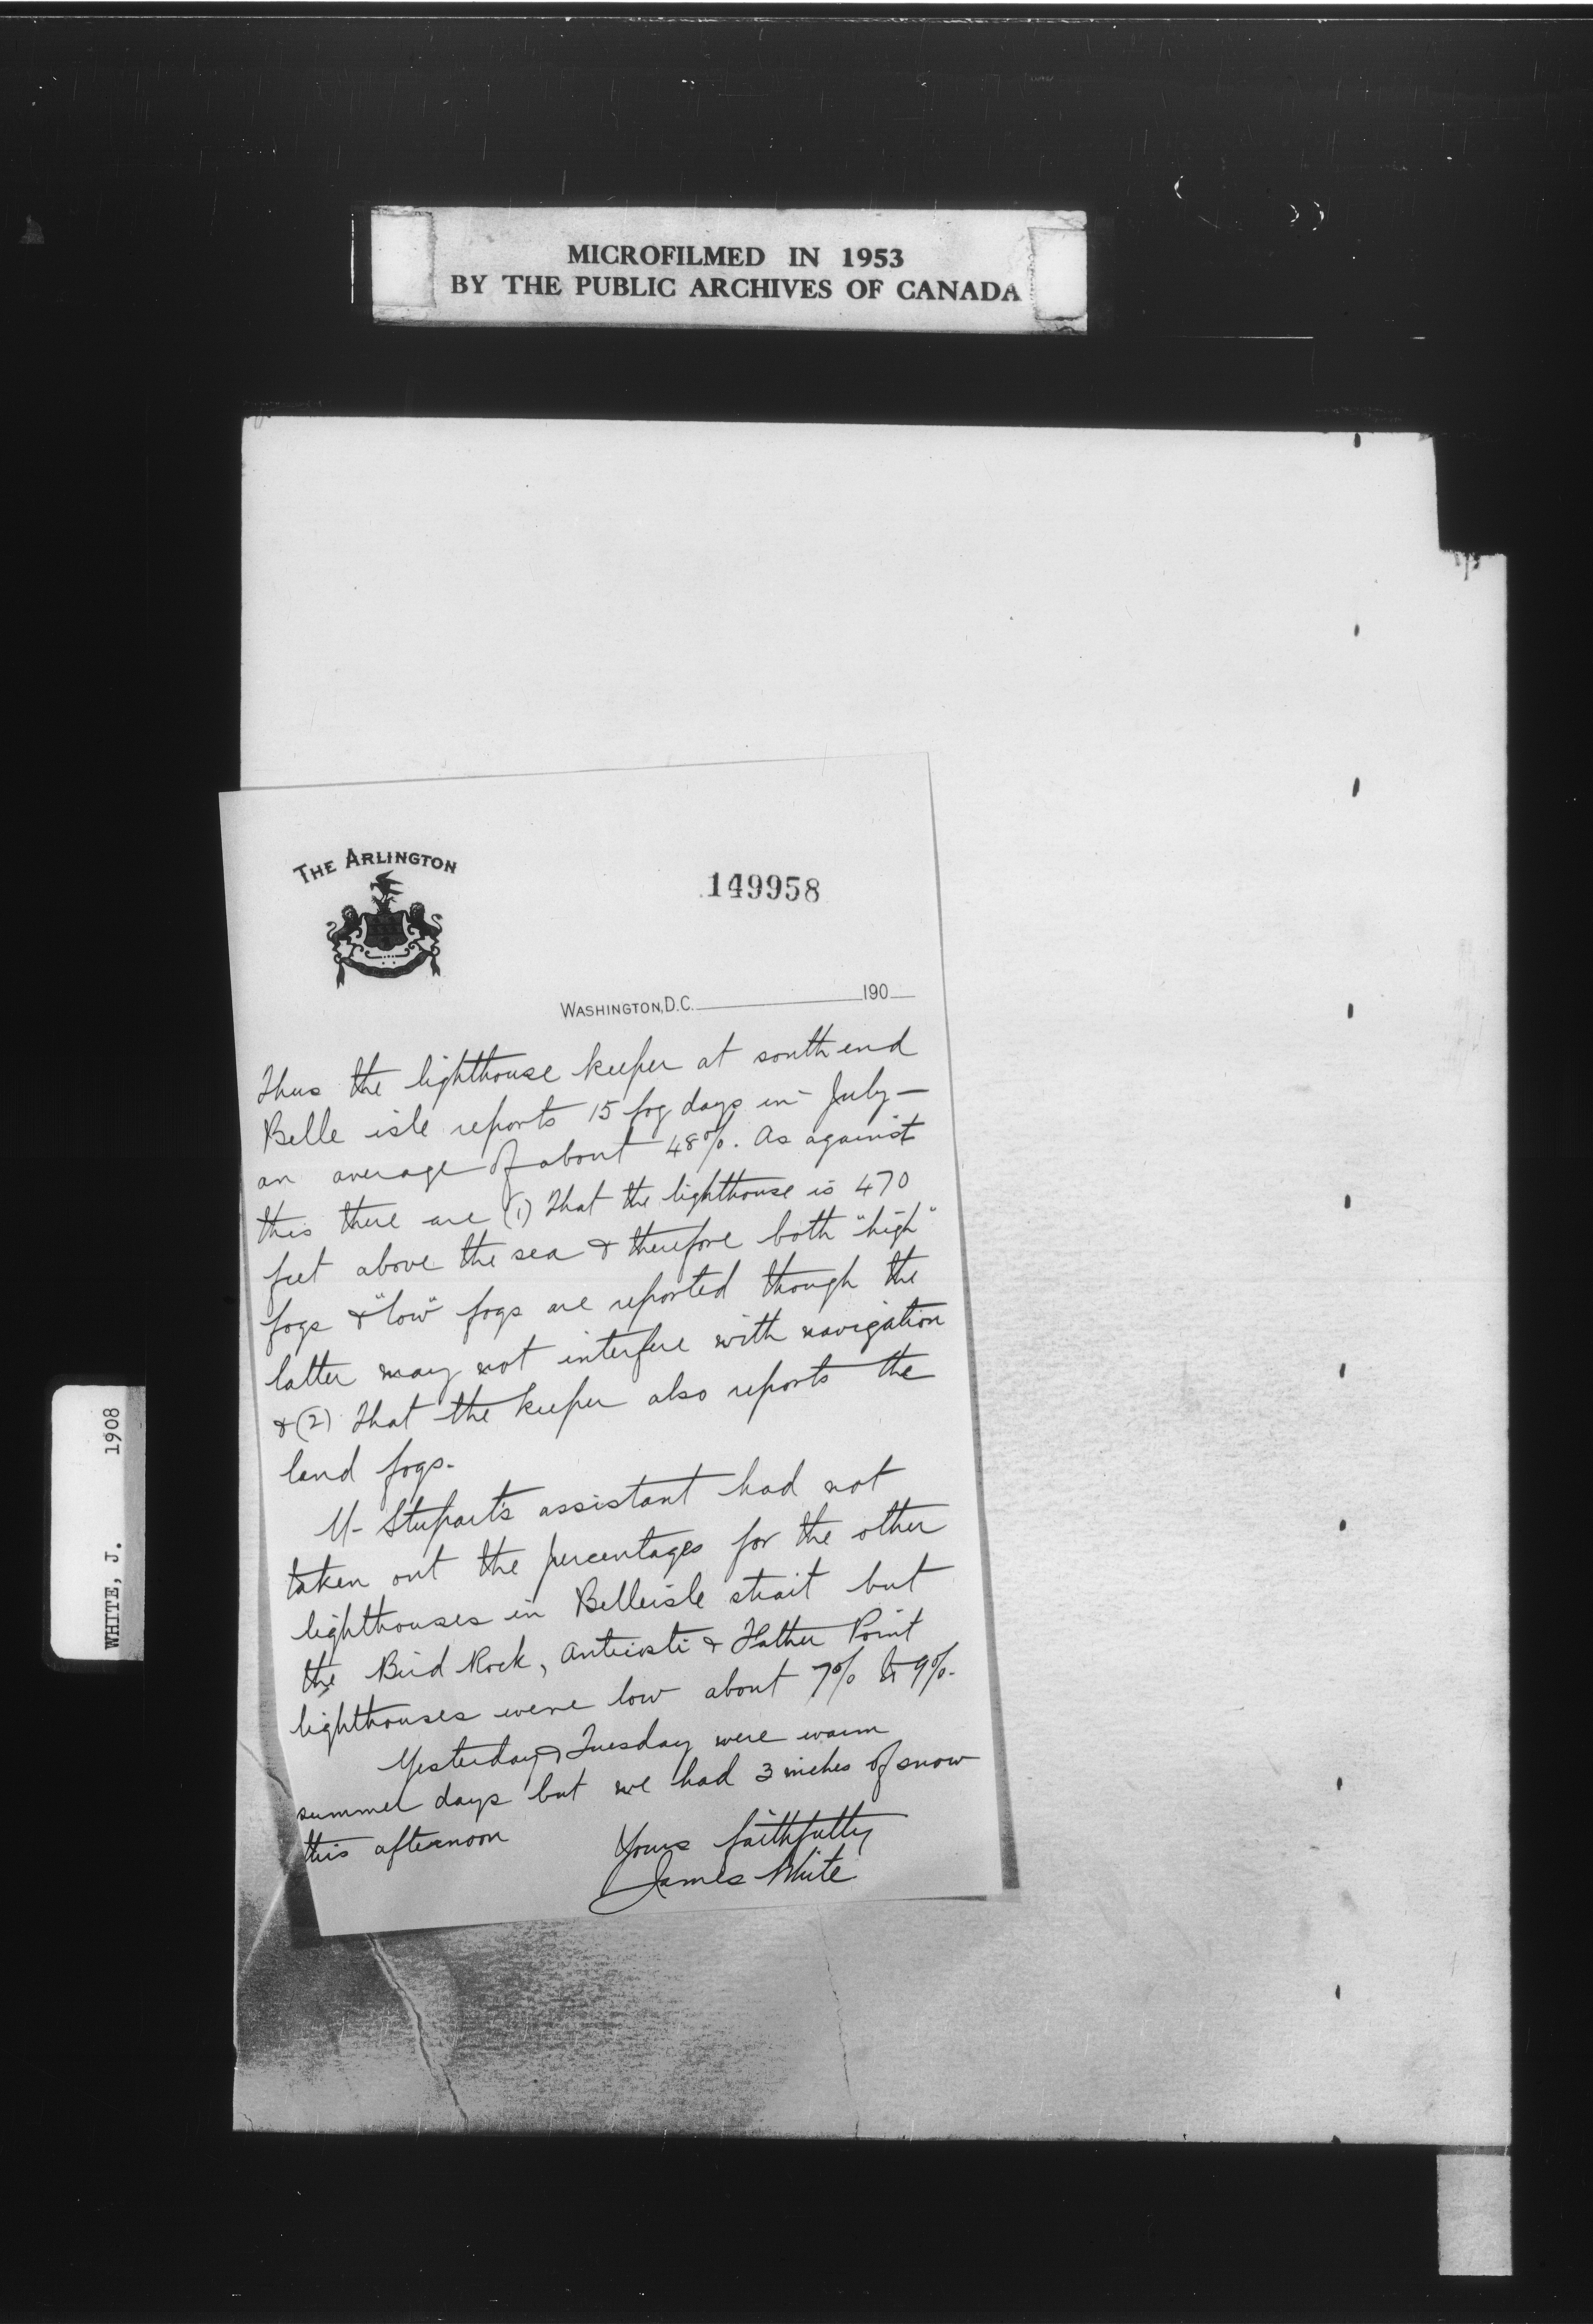 MICROFILMED IN 1953
BY THE PUBLIC ARCHIVES OF CANADA
WHITE, J. 1908
THE ARLINGTON
149958
WASHINGTON, D.C. 190
Thus the lighthouse keeper at south end
Belle isle reports 15 fog days in July —
an average of about 48%. As against
this there are (1) That the lighthouse is 470
feet above the sea & therefore both "high"
fogs & "low" fogs are reported though the
latter may not interfere with navigation
& (2) That the keeper also reports the
land fogs.
Mr Stupart's assistant had not
taken out the percentages for the other
lighthouses in Belleisle strait but
the Bird Rock, Anticosti & Father Point
lighthouses were low about 7% to 9%.
Yesterday & Tuesday were warm
summer days but we had 3 inches of snow
this afternoon
Yours faithfully
James White